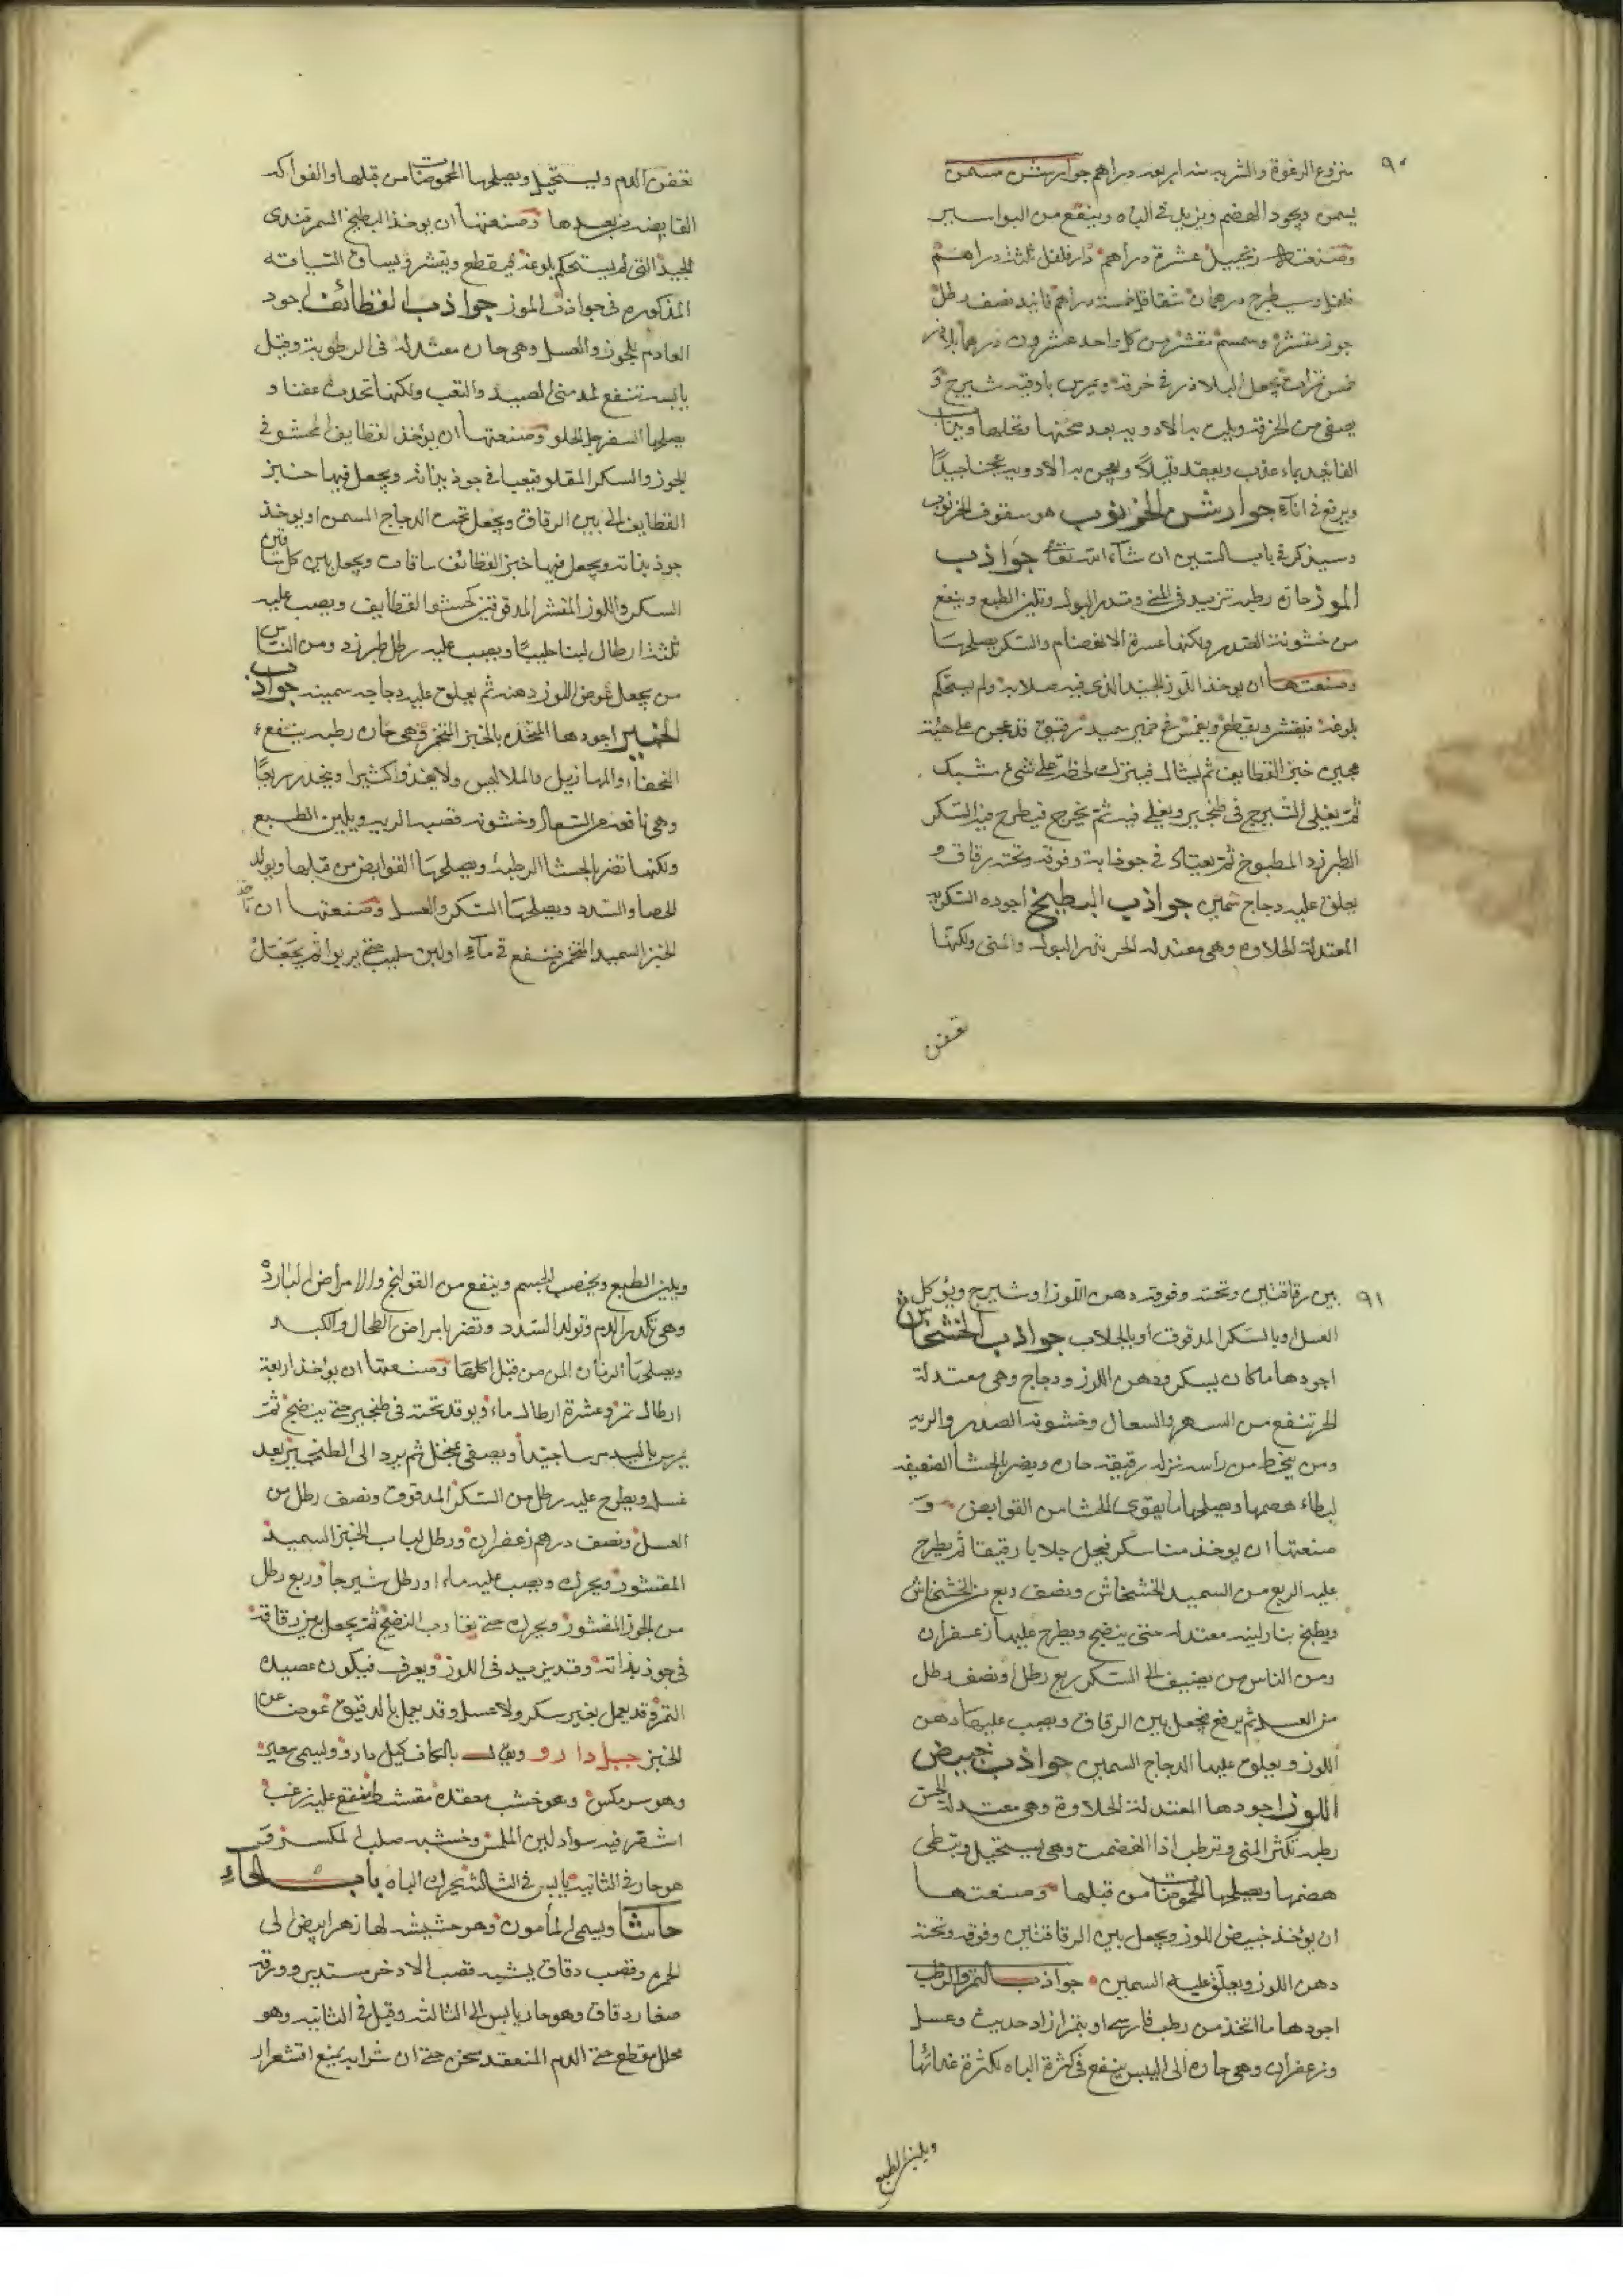 ٩٠
منزوع الرغوة والشربه منه اربعه دراهم جوارشن مسمن
يسمن ويجود الهضم ويزيد في الباه وينفع من البواسير
وصنعته زنجبيل عشرة دراهم دار فلفل ثلثه دراهم
شقاقل خمسة دراهم فانيد نصف رطل
جوز مقشر وسمسم مقشر من كل واحد عشرون درهما بلاذر
خمس يجعل البلاذر في خرقه ويمرس باوقيه شيرج و
يصفى من الخرقه ويلت به الادويه بعد سحقها ونخلها
الفانيد بماء عذب ويعقد قليلا ويعجن به الادويه عجنا جيدا
ويرفع في اناء جوارشن الخرنوب هو سفوف الخرنوب
وسيذكر في باب السين ان شاء الله تعالى جواذب
الموز حارة رطبه تزيد في المني وتدر البول وتلين الطبع وينفع
من خشونة الصدر ولكنها عسرة الانهضام والسكر يصلحها
وصنعتها ان يوخذ الموز الجيد الذي فيه صلابة ولم يستحكم
بلوغه فيقشر ويقطع ويغمس في خمير سميد رقيق قد عجن على هيئة
عجين خبز القطايف ثم يشال فيترك لحظة على شيء مشبك
ثم يغلى الشيرج في طنجير ويغلى فيه ثم يخرج فيطرح فيه السكر
الطبرزد المطبوخ ثم يعبأ في جوذابة وفوقه وتحته رقاق و
يعلق عليه دجاج سمين جواذب البطيخ اجوده السكريه
المعتدلة الحلاوه وهي معتدله الحر تدر البول والمني ولكنها
تعفن
تعفن الدم ويستحيل ويصلحها الحموضات من قبلها والفواكه
القابضه من بعدها وصنعتها ان يوخذ البطيخ السمرقندى
الجيد التي لم يستحكم بلوغه فيقطع ويقشر ويساق السياقه
المذكوره في جواذب الموز جواذب القطائف اجود
بالجوز والعسل وهي حاره معتدله في الرطوبة وقيل
يابسه تنفع لمدمني الصيد والتعب ولكنها تحدث عفنا و
يصلحها السفرجل الحلو وصنعتها ان يؤخذ القطايف المحشو في
الجوز والسكر المقلو فيعبا في جوذبانه ويجعل فيها خبز
القطايف الى بين الرقاق ويجعل تحت الدجاج المسمن او يوخذ
جوذبانه ويجعل فيها خبز القطائف ساقات ويجعل بين كل ساقين
السكر واللوز المقشر المدقوقين كحشو القطايف ويصب عليه
ثلثة ارطال لبنا حليبا ويصب عليه رطل طبرزد ومن الناس
من يجعل عوض اللوز دهنه ثم يعلق عليه دجاجه سمينه جواذب
الخبز اجودها المتخذه بالخبز المختمر وهي حاره رطبه ينفع
النحفاء والمهازيل ولا يغذوا كثيرا وينحدر سريعا
وهي نافعه من السعال وخشونه قصبه الريه ويلين الطبع
ولكنها تضر بالحشا الرطبة ويصلحها القوابض من قبلها ويولد
الحصا والسدد ويصلحها السكر والعسل وصنعتها ان ياخذ
الخبز السميد المختمر فينقع في ماء او لبن حليب حتى يربوا ثم يجعل
٩١
بين رقاقتين وتحته وفوقه دهن اللوز او شيرج ويؤكل
العسل او بالسكر المدقوق او بالجلاب جواذب الخشخاش
اجودها ما كان بسكر ودهن اللوز ودجاج وهي معتدلة
الحر تنفع من السهر والسعال وخشونه الصدر والريه
ومن ينحط من رأسه نزله رقيقه حاره ويضر بالحشا الضعيفه
لبطاء هضمها ويصلحها ما يقوى الحشا من القوابض و
صنعتها ان يوخذ منا سكر فيحل جلابا رقيقا ثم يطرح
عليه الربع من السميد الخشخاش ونصف ربع من الخشخاش
ويطبخ بنار لينه معتدله حتى ينضج ويطرح عليها زعفران
ومن الناس من يضيف الى السكر ربع رطل او نصف رطل
من العسل ثم يرفع فيجعل بين الرقاق ويصب عليها دهن
اللوز ويعلق عليها الدجاج السمين جواذب خبيص
اللوز اجودها المعتدلة الحلاوة وهي معتدلة الحر
رطبه تكثر المني وترطب اذا انهضمت وهي يستحيل وتبطي
هضمها ويصلحها الحموضات من قبلها وصنعتها
ان يؤخذ خبيص اللوز ويجعل بين الرقاقتين وفوقه وتحته
دهن اللوز ويعلق عليه السمين جواذب التمر والرطب
اجودها ما اتخذ من رطب فارسي او بتمر ازاد حديث وعسل
وزعفران وهي حاره الى اليبس ينفع في كثرة الباه لكثرة غذائها
ويلين الطبع
ويلين الطبع ويخصب الجسم وينفع من القولنج والامراض البارده
وهي تكدر الدم وتولد السدد وتضر بامراض الطحال والكبد
ويصلحها الرمان المز من قبل اكلها وصنعتها ان يؤخذ اربعة
ارطال تمر وعشرة ارطال ماء ويوقد تحته في طنجير حتى ينضج ثم
يمرس باليد مرسا جيدا ويصفى بمنخل ثم يرد الى الطنجير بعد
غسله ويطرح عليه رطل من السكر المدقوق ونصف رطل من
العسل ونصف درهم زعفران ورطل لباب الخبز السميد
المقشور ويحرك ويصب عليه ماء او رطل شيرجا وربع رطل
من الجوز المقشور ويحرك حتى يقارب النضج ثم يجعل بين رقاقه
في جوذبانه وقد يزيد في اللوز ويعرف فيكون عصيده
التمر وقد يعمل بغير سكر ولا عسل وقد يعمل بالدقيق عوضا عن
الخبز جبل دارو ويقال بالكاف كيل دارو ويسمى
وهو سرمكس وهو خشب معقده عليه زغب
اشقر فيه سواد لين الملمس وخشبه صلب المكسر و
هو حار في الثانيه يابس في الثالثه يحرك الباه باب الحاء
حاشا ويسمى المأمون وهو حشيشه لها زهر ابيض الى
الحمره وقضب دقاق يشبه قضب الاذخر مستدير وورقه
صغار دقاق وهو حار يابس الى الثالثه وقيل في الثانيه وهو
محلل مقطع حتى الدم المنعقد سخن حتى ان شرابه يمنع اقشعرار